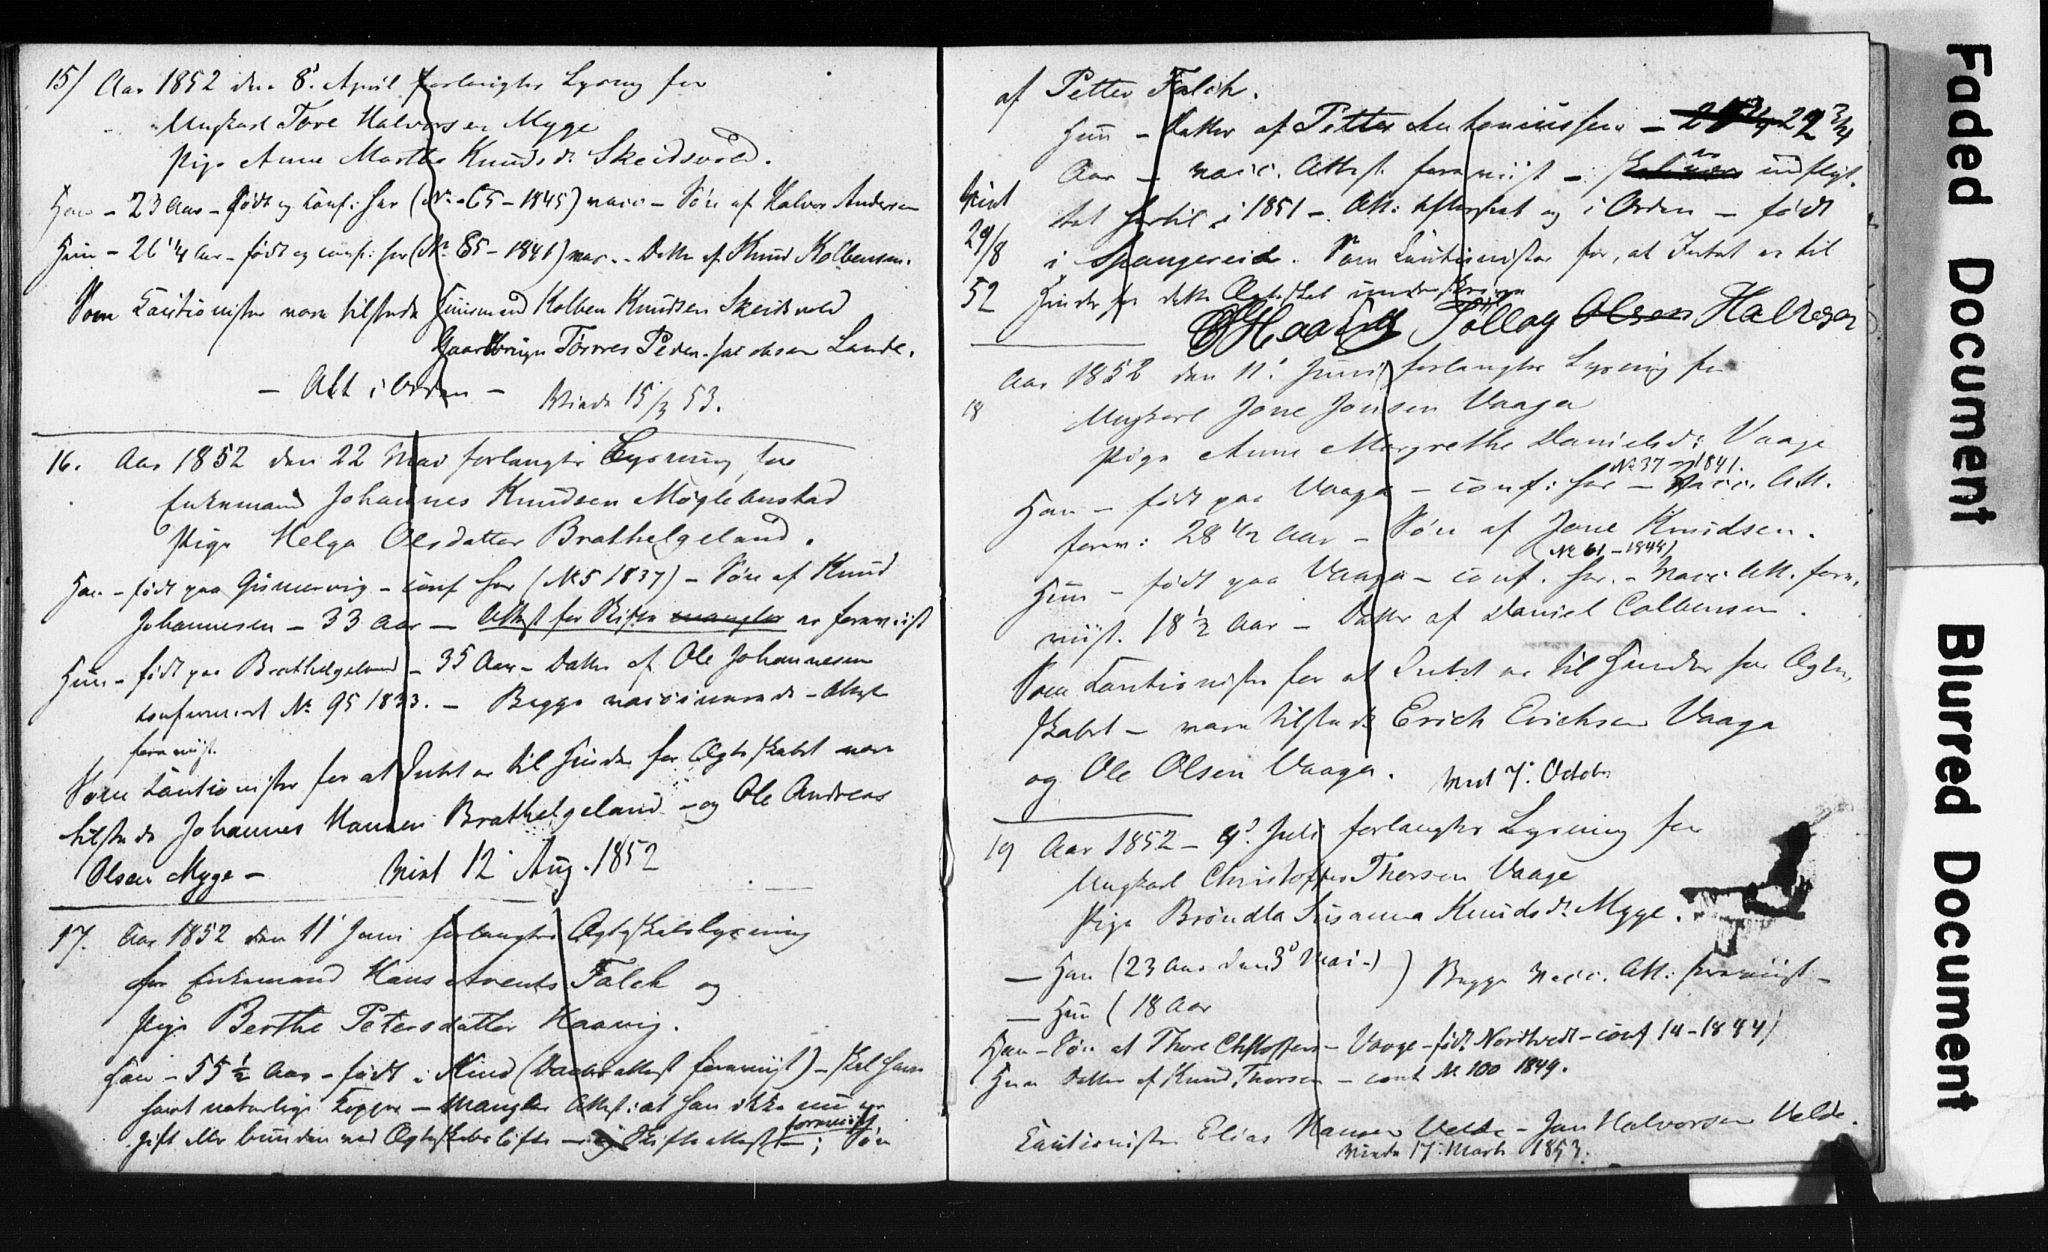 15/ Aar 1852 den 8' April forlangtes Lysning for
Ungkarl Tore Halvorsen Mygge
Pige Anne Marthe Knudsd: Skeidsvold.
Han – 23 Aar – født og conf: her (No 65 – 1845) vacc – Søn af Halvor Andersen
Hun – 26 1/4 Aar – født og conf: her (No 85 – 1841) vac. – Datter af Knud Kolbensen.
Som Cautionister vare tilstede Huusmand Kolben Knudsen Skeidsvold
Torres Peder Lande.
– Alt i Orden – Viede 15/3 53.
16. Aar 1852 den 22 Mai forlangtes Lysning for
Enkemand Johannes Knudsen Møglebustad
Pige Helga Olsdatter Brathelgeland.
Han – født paa Gismervig – conf her (No 5 1837) – Søn af Knud
Johannesen – 33 Aar – Attest for Skifte mangler er foreviist
Hun – født paa Brathelgeland – 35 Aar – Datter af Ole Johannesen
confirmeret No 95 1833. – Begge vaccinerede – Attest
foreviist.
Som Cautionister for at Intet er til Hinder for Ægteskabet vare
tilstede Johannes Hansen Brathelgeland – og Ole Andreas
Olsen Mygge – Viet 12' Aug. 1852
17. Aar 1852 den 11' Juni forlangtes Ægteskabslysning
for Enkemand Hans Arents Falch og
Pige Berthe Petersdatter Haavig.
Han – 55 1/2 Aar – født i (Daabsattest foreviist) – skal have
havt naturlige Kopper – Mangler Attest: at han ikke nu er
gift eller bunden ved Ægteskabsløfte – og Skifteattest – foreviist; Søn
af Petter Falch.
Hun – Datter af Petter Antoniussen – 29 3/4
Aar – vacc. Attest. foreviist – indflyt-
tet hertil i 1851 – Att: efterseet og i Orden – født
i Spangereid. Som Cautionister for, at Intet er til
Hinder for dette Ægteskab underskrive
Viet
29/8
52
Haavig Tollag Olsen Halvegen
18
Aar 1852 den 11' Juni forlangtes Lysning for
Ungkarl Jone Jonsen Vaage
Pige Anne Margrethe Danielsd: Vaage
No 37 – 1841.
Han – født paa Vaage – conf: her – Vacc. Att.
forev: 28 1/2 Aar – Søn af Jone Knudsen.
(No 61 – 1848)
Hun – født paa Vaage – conf. her. – Vacc. Att. fore-
viist. 18 1/2 Aar – Datter af Daniel Colbensen.
Som Cautionister for at Intet er til Hinder for Ægte-
skabet – vare tilstede Erich Erichsen Vaage
og Ole Olsen Vaage. Viet 7' Octobr
19 Aar 1852 – 9' Juli forlangtes Lysning for
Ungkarl Christoffer Thorsen Vaage
Pige Brøndla Susanna Knudsd: Mygge.
– Han (23 Aar den 3' Mai –) ) Begge Vacc. Att: foreviist –
– Hun (18 Aar
Han – Søn af Thore Chstoffers – Vaage – født Nordtvedt – conf 14 – 1844)
Hun Datter af Knud Thorsen – conf No 100 1849.
Cautionister Elias Hansen Velde – Jan Halvorsen Velde.
Viede 17' Marts 1853.
Faded Document
Blurred Document